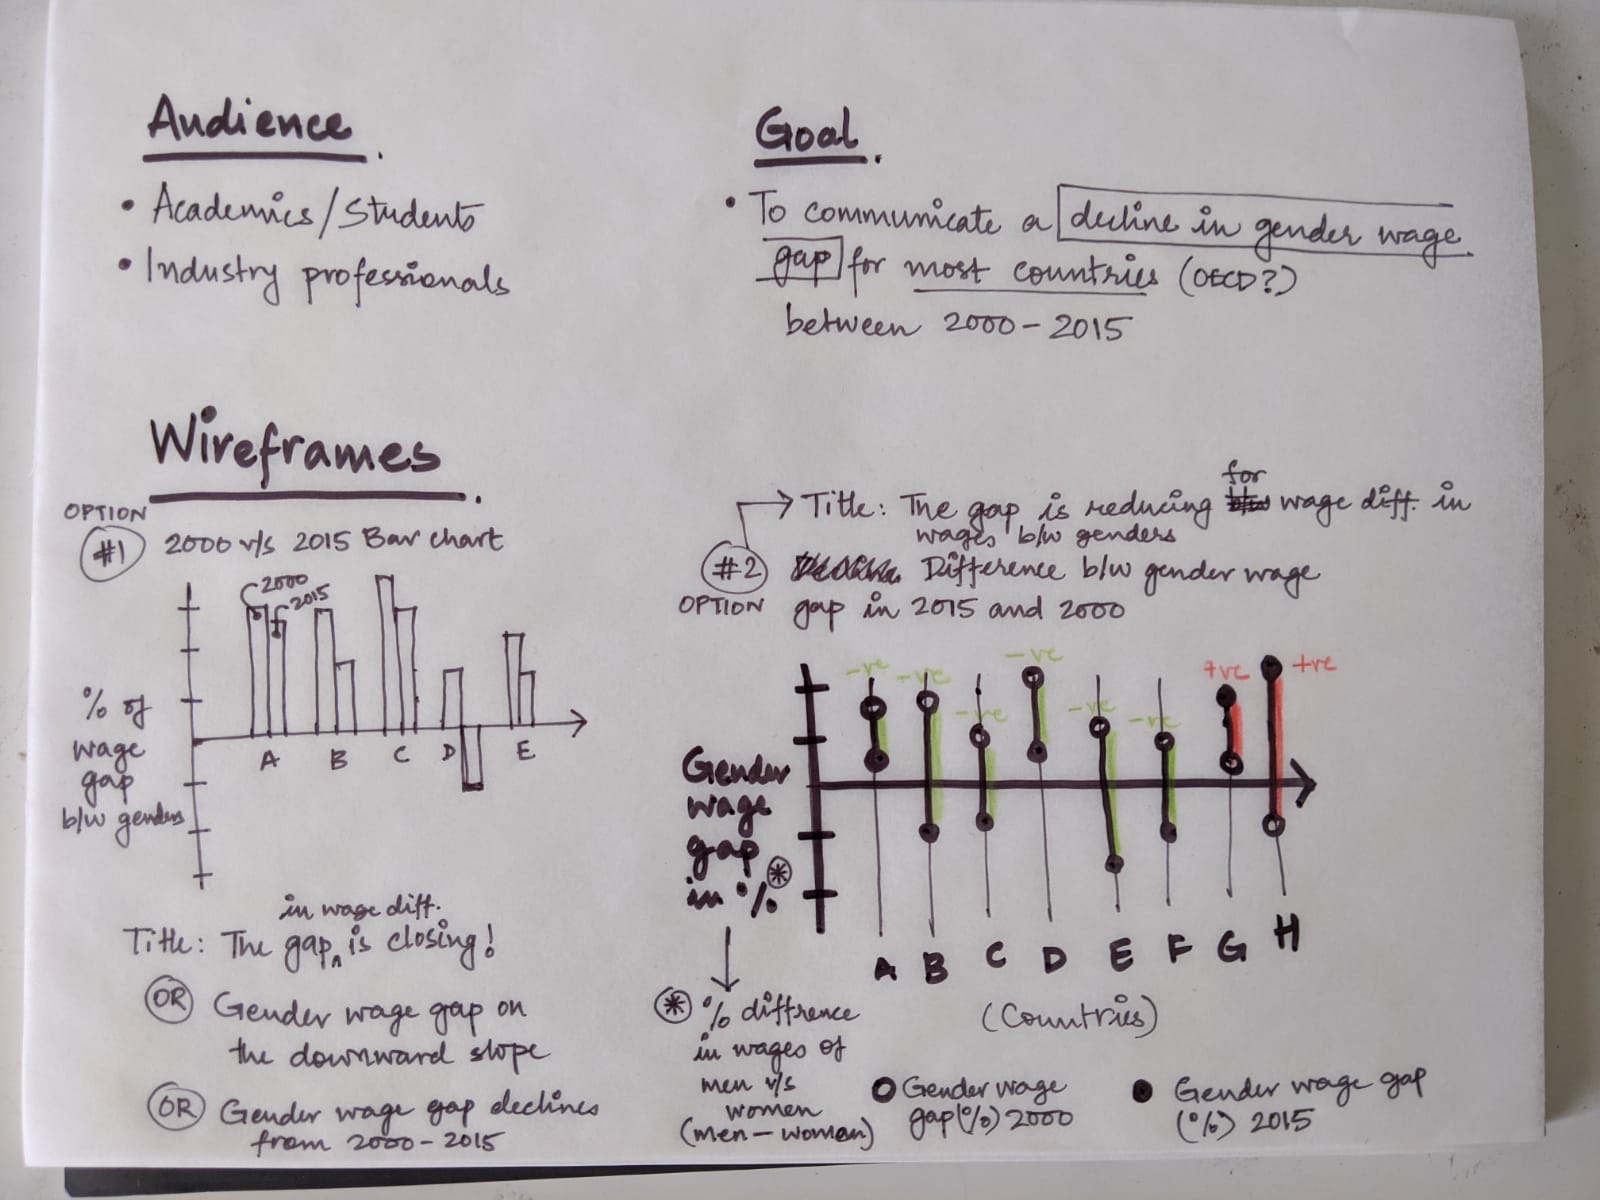 Audience.
• Academics/Students
• Industry professionals
Goal.
• To communicate a decline in gender wage
gap for most countries (OECD?)
between 2000-2015
Wireframes.
OPTION
#1 2000 v/s 2015 Bar chart
2000
2015
% of
wage
gap
b/w genders
A B C D E
in wage diff.
Title: The gap ^ is closing!
OR Gender wage gap on
the downward slope
OR Gender wage gap declines
from 2000-2015
for
Title: The gap is reducing b/w wage diff. in
wages b/w genders
#2 Difference b/w gender wage
OPTION gap in 2015 and 2000
-ve -ve -ve -ve -ve -ve +ve +ve
Gender
wage
gap
in % *
A B C D E F G H
(Countries)
* % diffrence
in wages of
men v/s
women
(men - woman)
Gender wage
gap(%) 2000
Gender wage gap
(%) 2015